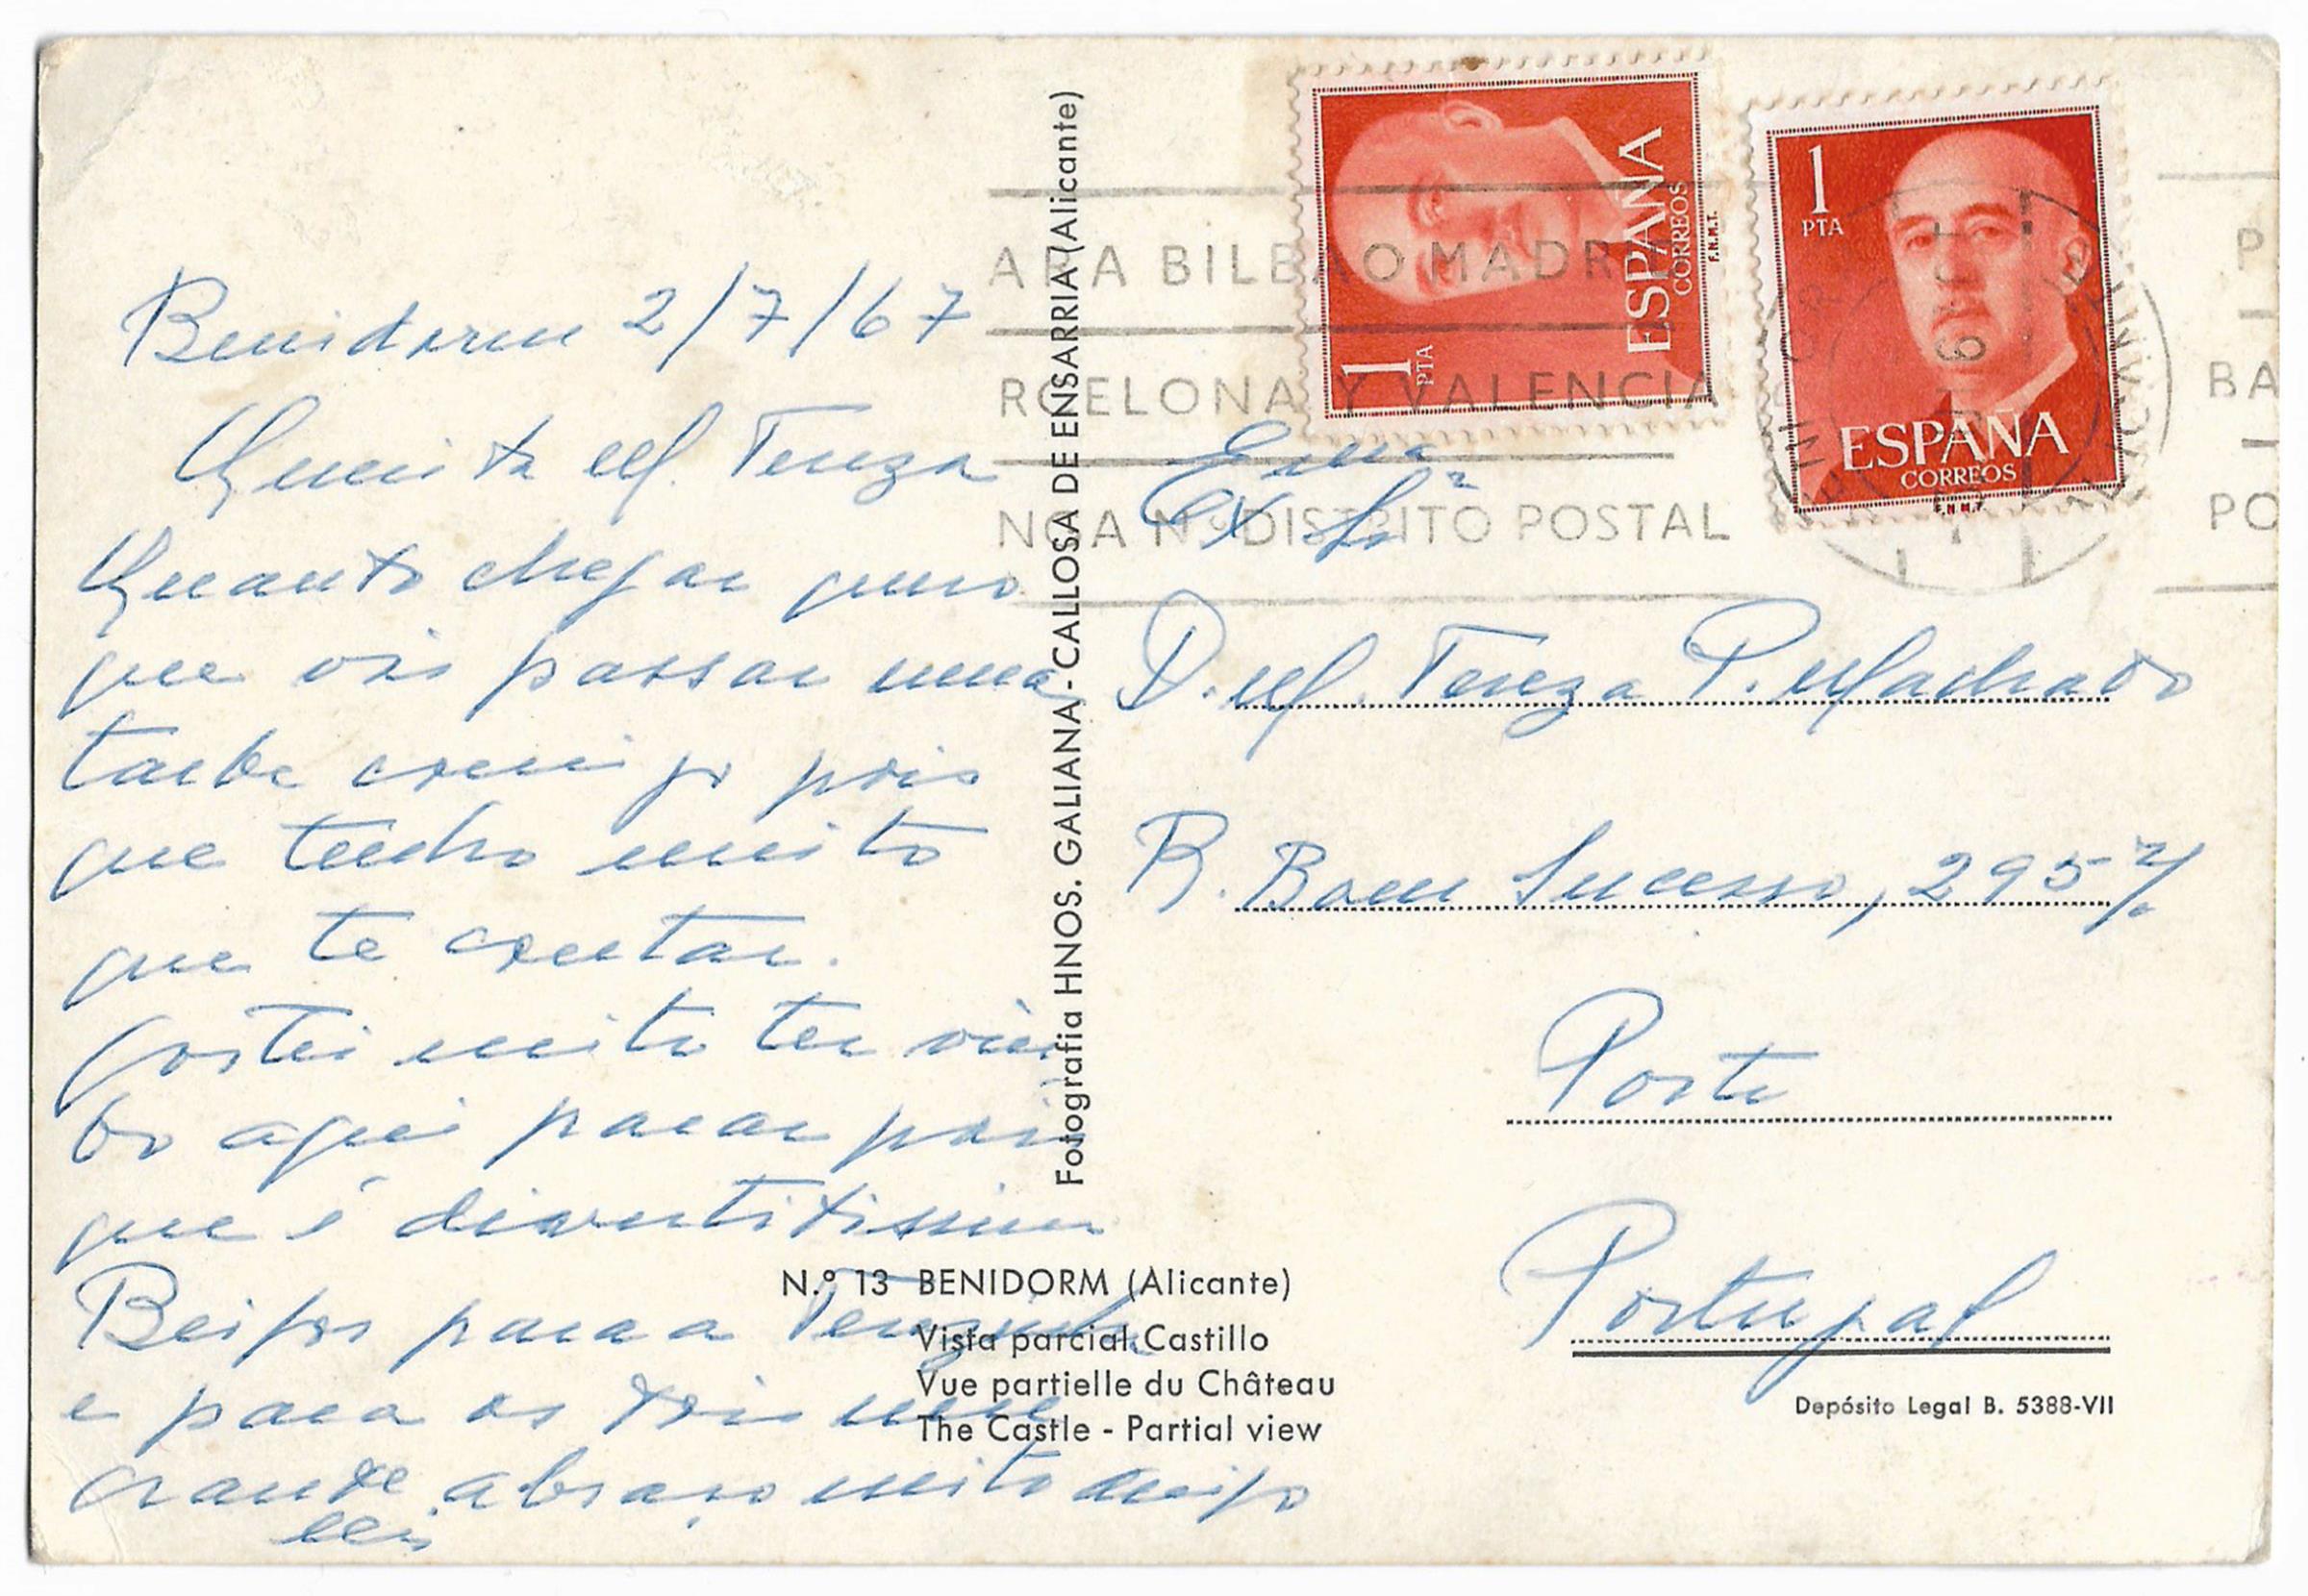 Benidorm 2/7/67
Querida M. Tereza
Quando chegar quero
que vás passar uma
tarde comigo pois
que tenho muito
que te contar.
Gostei muito ter vin
do aqui parar pois
que é divertidissimo
Beijos para a
e para os dois um
grande abraço muito amigo
Fotografia HNOS. GALIANA - CALLOSA DE ENSARRIA (Alicante)
N.º 13 BENIDORM (Alicante)
Vista parcial Castillo
Vue partielle du Château
The Castle - Partial view
1 PTA
ESPAÑA
CORREOS
F.N.M.T.
1 PTA
ESPAÑA
CORREOS
F.N.M.T.
ARA BILBAO MADRI
RCELONA Y VALENCIA
NGA N.º DISTRITO POSTAL
P
BA
PO
BENIDORM
Exma
Sra
D. M. Tereza P. Machado
R. Bom Sucesso, 295
Porto
Portugal
Depósito Legal B. 5388-VII